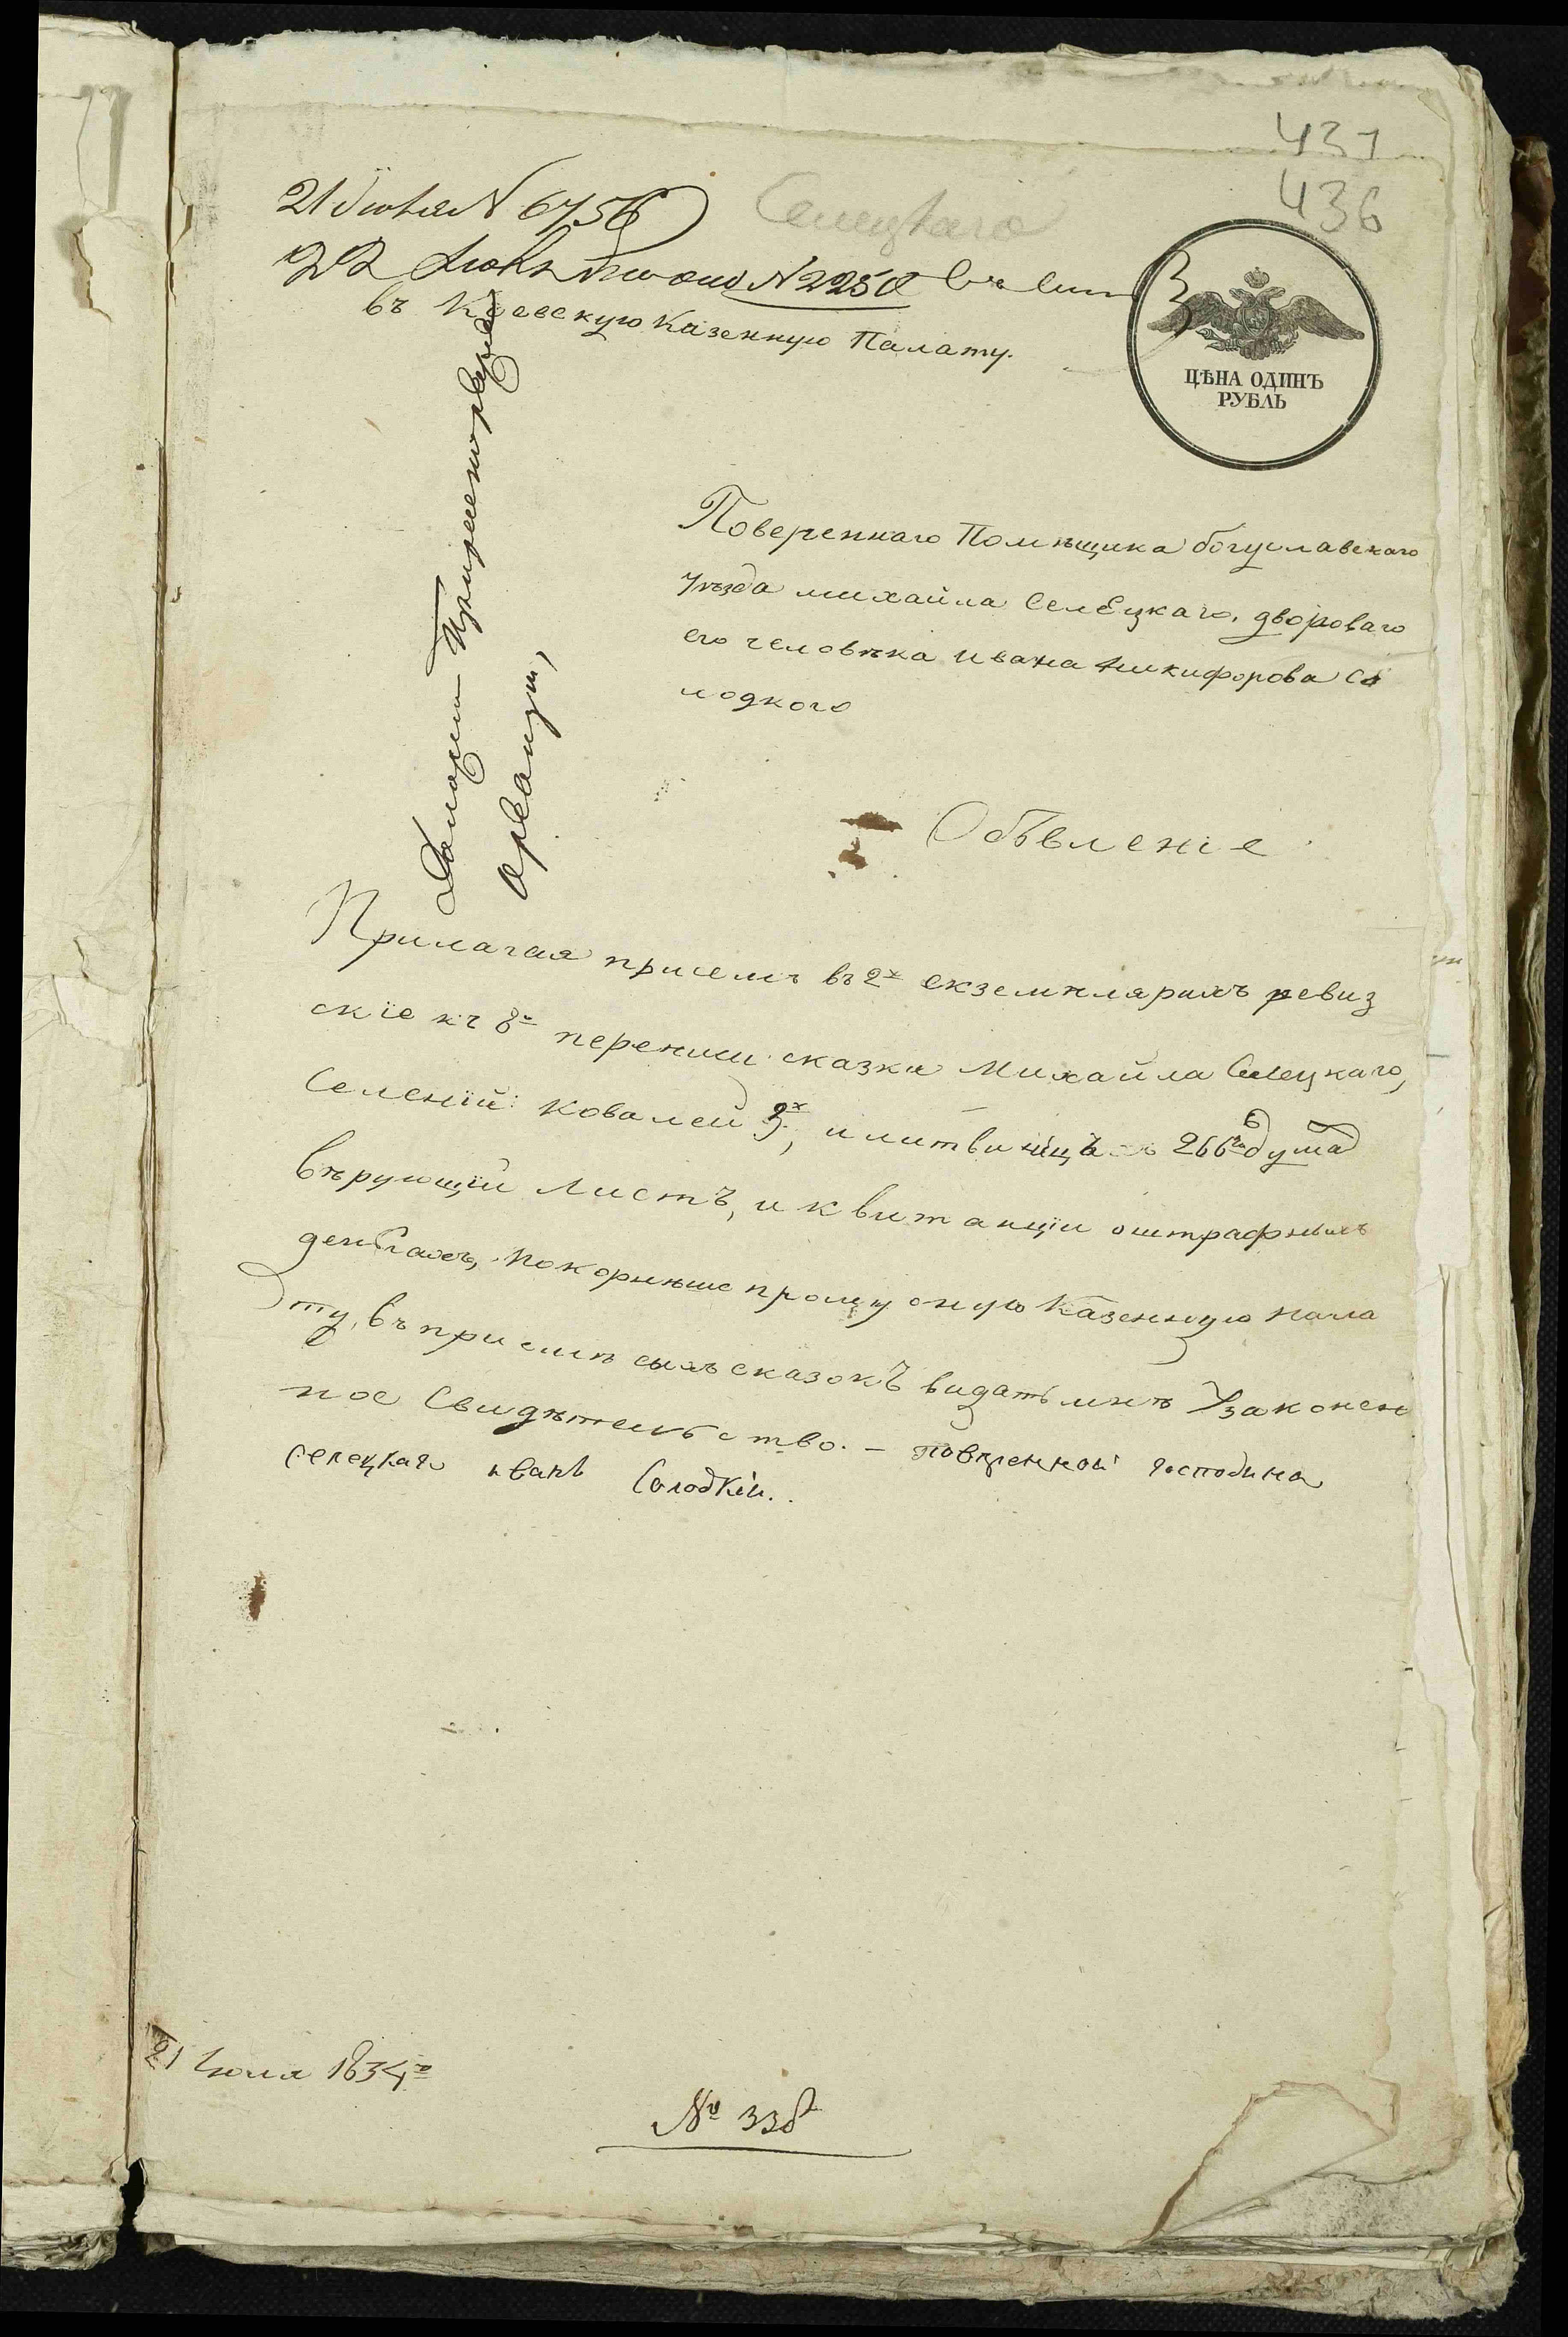 431
436
21 Июня N 6756
Селецкаго
22 Июня N 2250
въ Киевскую Казенную Палату.
ЦѢНА ОДИНЪ
РУБЛЬ
Повереннаго Помѣщика богуславскаго
Уѣзда михайла Селецкаго, двороваго
его человѣка ивана никифорова Со
лодкого
Объвленіе
Прилагая присемъ въ 2х екземплярахъ ревиз
скіе къ 8й переписи сказки Михайла Селецкаго,
Селеній: Ковалей 3х, и литвинець 266 душа
вѣрующій Листъ, и квитанціи оштрафныхъ
деньгахъ, покорнѣше прошу оную Казенную пала
ту, въ приемѣ сихъ сказокъ видать мнѣ Узаконен
ное Свидѣтельство. – повѣренной господина
селецкаго иванъ Солодкій..
21 Июля 1834го
№ 338